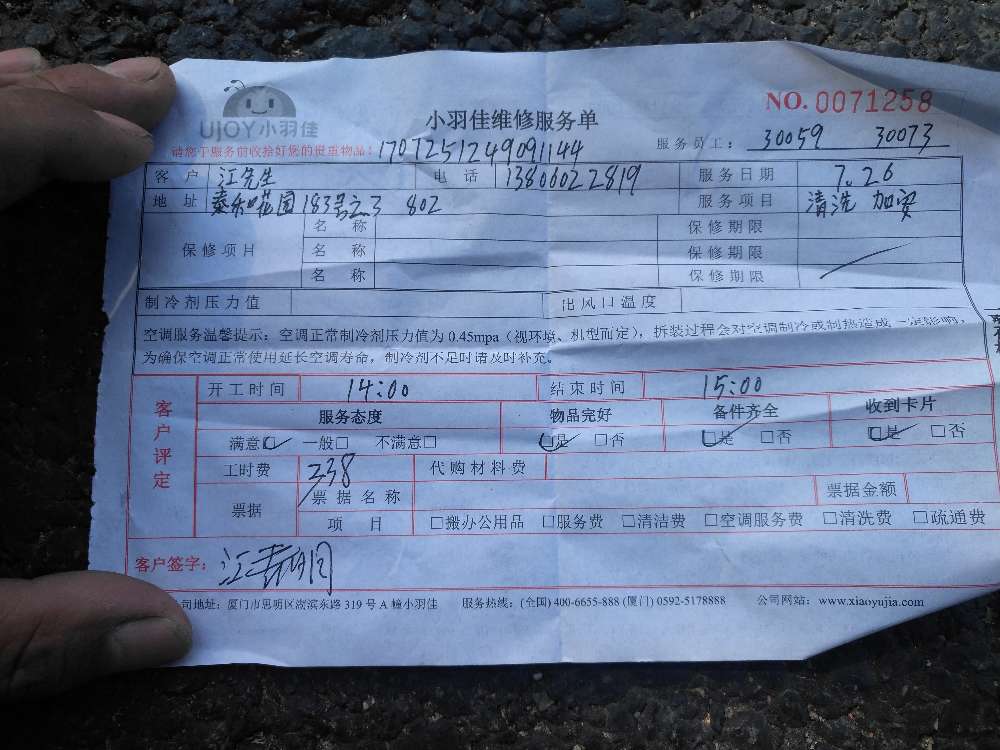 UJOY小羽佳
小羽佳维修服务单
NO. 0071258
请您于服务前收拾好您的贵重物品!
1707251249091144
服务员工: 30059 30073
客户 江先生 电话 13806022819 服务日期 7.26
地址 花园183号之3 802 服务项目 清洗 加安
保修项片 名称 保修期限
名称 保修期限
名称 保修期限
制冷剂压力值 出风口温度
空调服务温馨提示:空调正常制冷剂压力值为0.45mpa(视环境、机型而定),拆装过程会对空调制冷或制热造成一定影响,
为确保空调正常使用延长空调寿命,制冷剂不足时请及时补充。
客户评定
开工时间 14:00 结束时间 15:00
服务态度 物品完好 备件齐全 收到卡片
满意□ 一般□ 不满意□ □是 □否 □是 □否 □是 □否
工时费 338 代购材料费
票据 票据名称 票据金额
项目 □搬办公用品 □服务费 □清洁费 □空调服务费 □清洗费 □疏通费
客户签字: 江
司地址:厦门市思明区湖滨东路319号A幢小羽佳 服务热线:(全国)400-6655-888(厦门)0592-5178888 公司网站:www.xiaoyujia.com